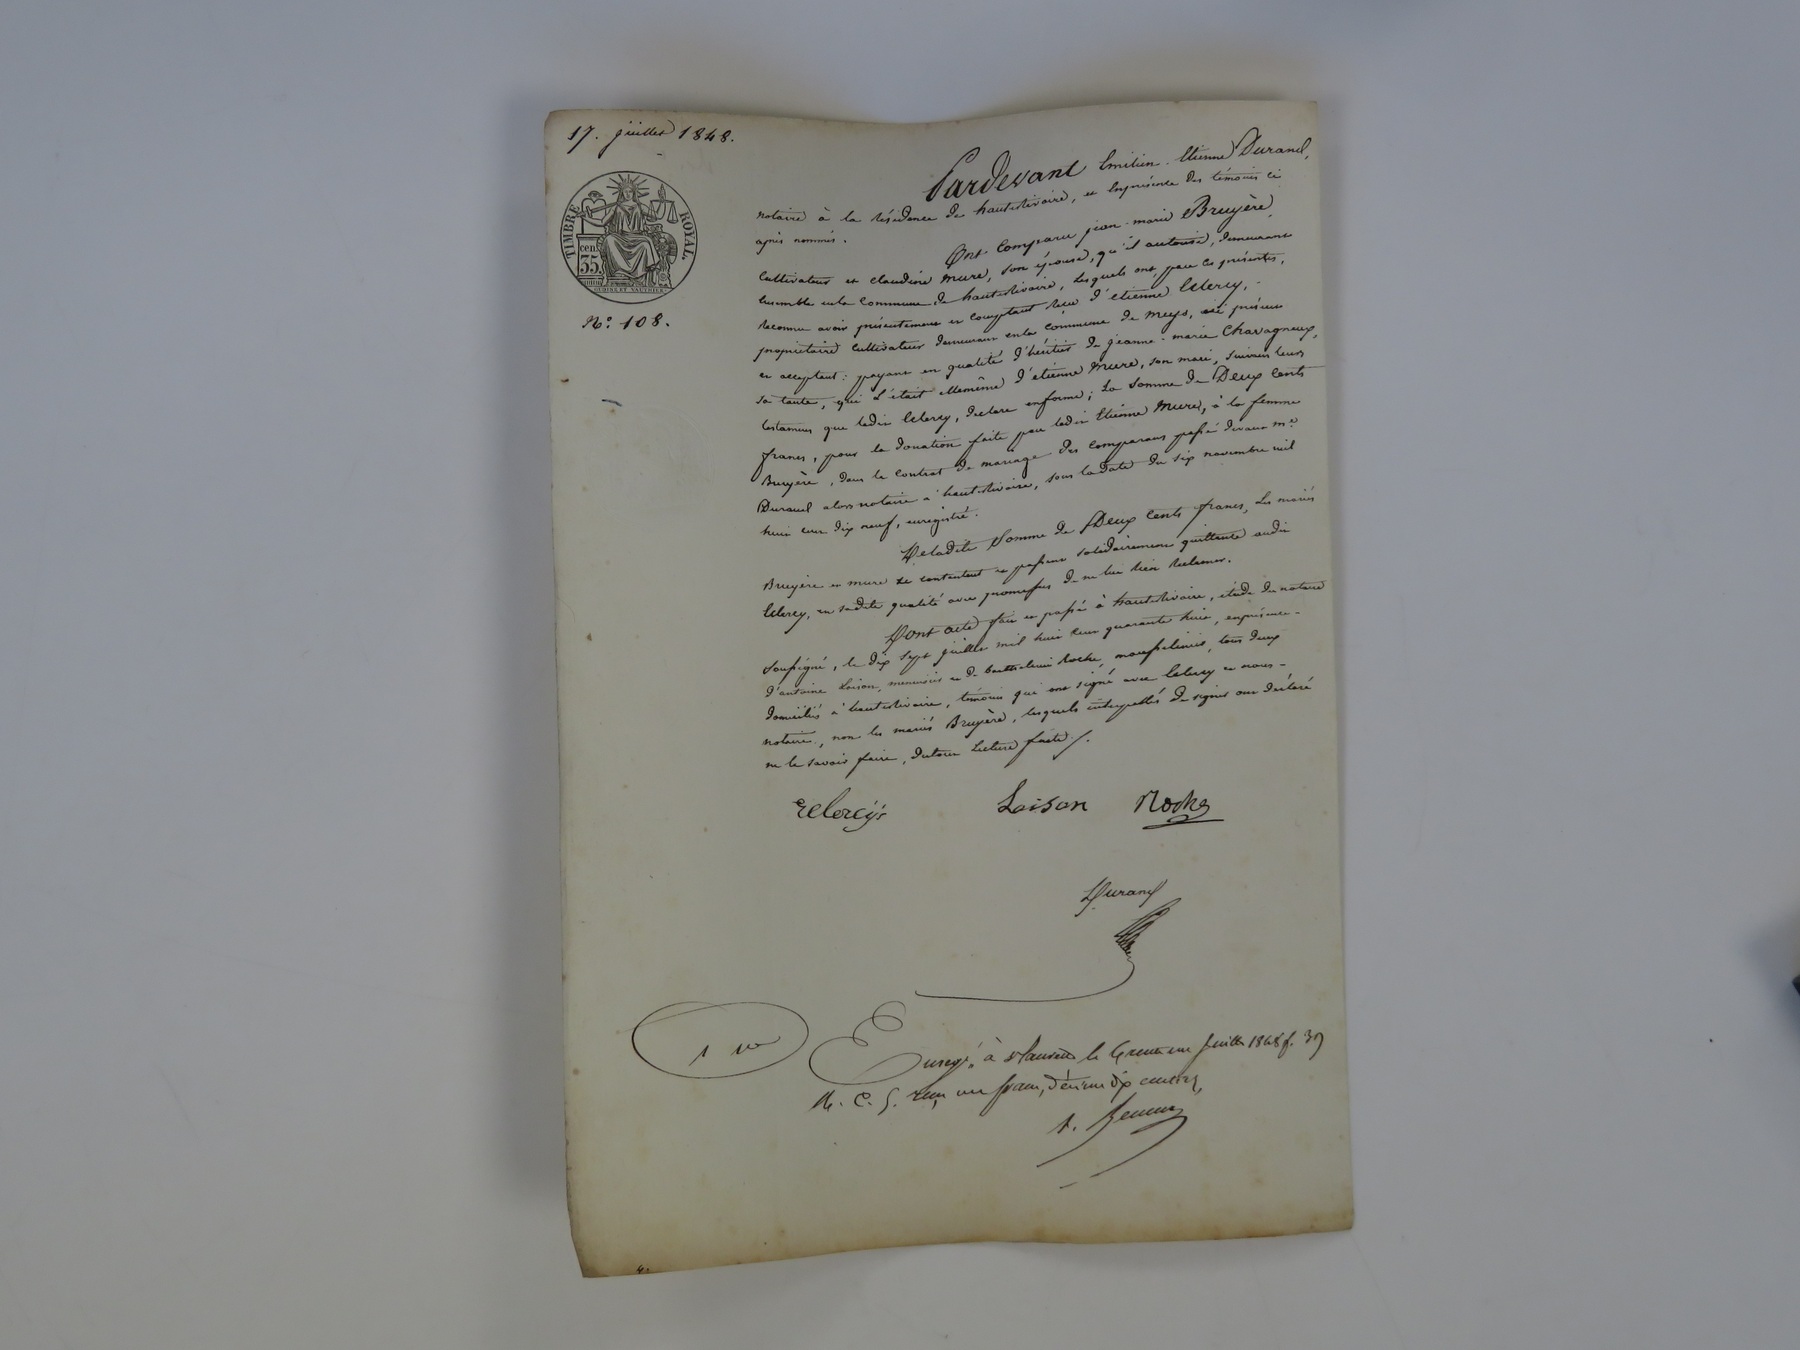 17. juillet 1848.
TIMBRE ROYAL.
cen.
35.
N.o 108.
Pardevant Emilien-Etienne Durand,
notaire à la résidence de hauterivoire, et Enprésence des témoins ci
après nommés.
Ont Comparu jean-marie Bruyère,
Cultivateur et claudine Mure, son épouse, qu'il autorise, demeurant
Ensemble enla Commune de hauterivoire, lesquels ont, par ces présentes,
Reconnu avoir présentement et comptant Reçu d'etienne Clercy,
propriétaire Cultivateur demeurant enla commune de meys, ici présent
et acceptant: payant en qualité d'héritier de jeanne-marie Chavagneux,
sa tante, qui l'était ellemême d'etienne Mure, son mari, suivant leurs
testamens que ledit Clercy, declare enforme; La Somme de Deux Cents
francs, pour la donation faite par ledit Etienne Mure, à la femme
Bruyère, dans le contrat de mariage des comparans passé devant m.e
Durand alors notaire à hauterivoire, sous la date du six novembre mil
huit cent dix neuf, enregistré.
Deladite Somme de Deux Cents francs, Les mariés
Bruyère et mure se contentent et passent solidairement quittance audit
Clercy, en sadite qualité avec promesses de ne lui Rien Réclamer.
Dont acte fait et passé à hauterivoire, étude du notaire
soussigné, le dix sept juillet mil huit cent quarante huit, enprésence
d'antoine Loison, menuisier et de barthelemi Roche, tous deux
domiciliés à hauterivoire, témoins qui ont signé avec Clercy et nous
notaire, non les mariés Bruyère, lesquels interpellés de signer ont déclaré
ne le savoir faire, dutout Lecture faite./.
Loison Roche
Durand
Enregé. à Juillet 1848 f. 39
R. C. 5. Reçu un franc, décime dix centimes,